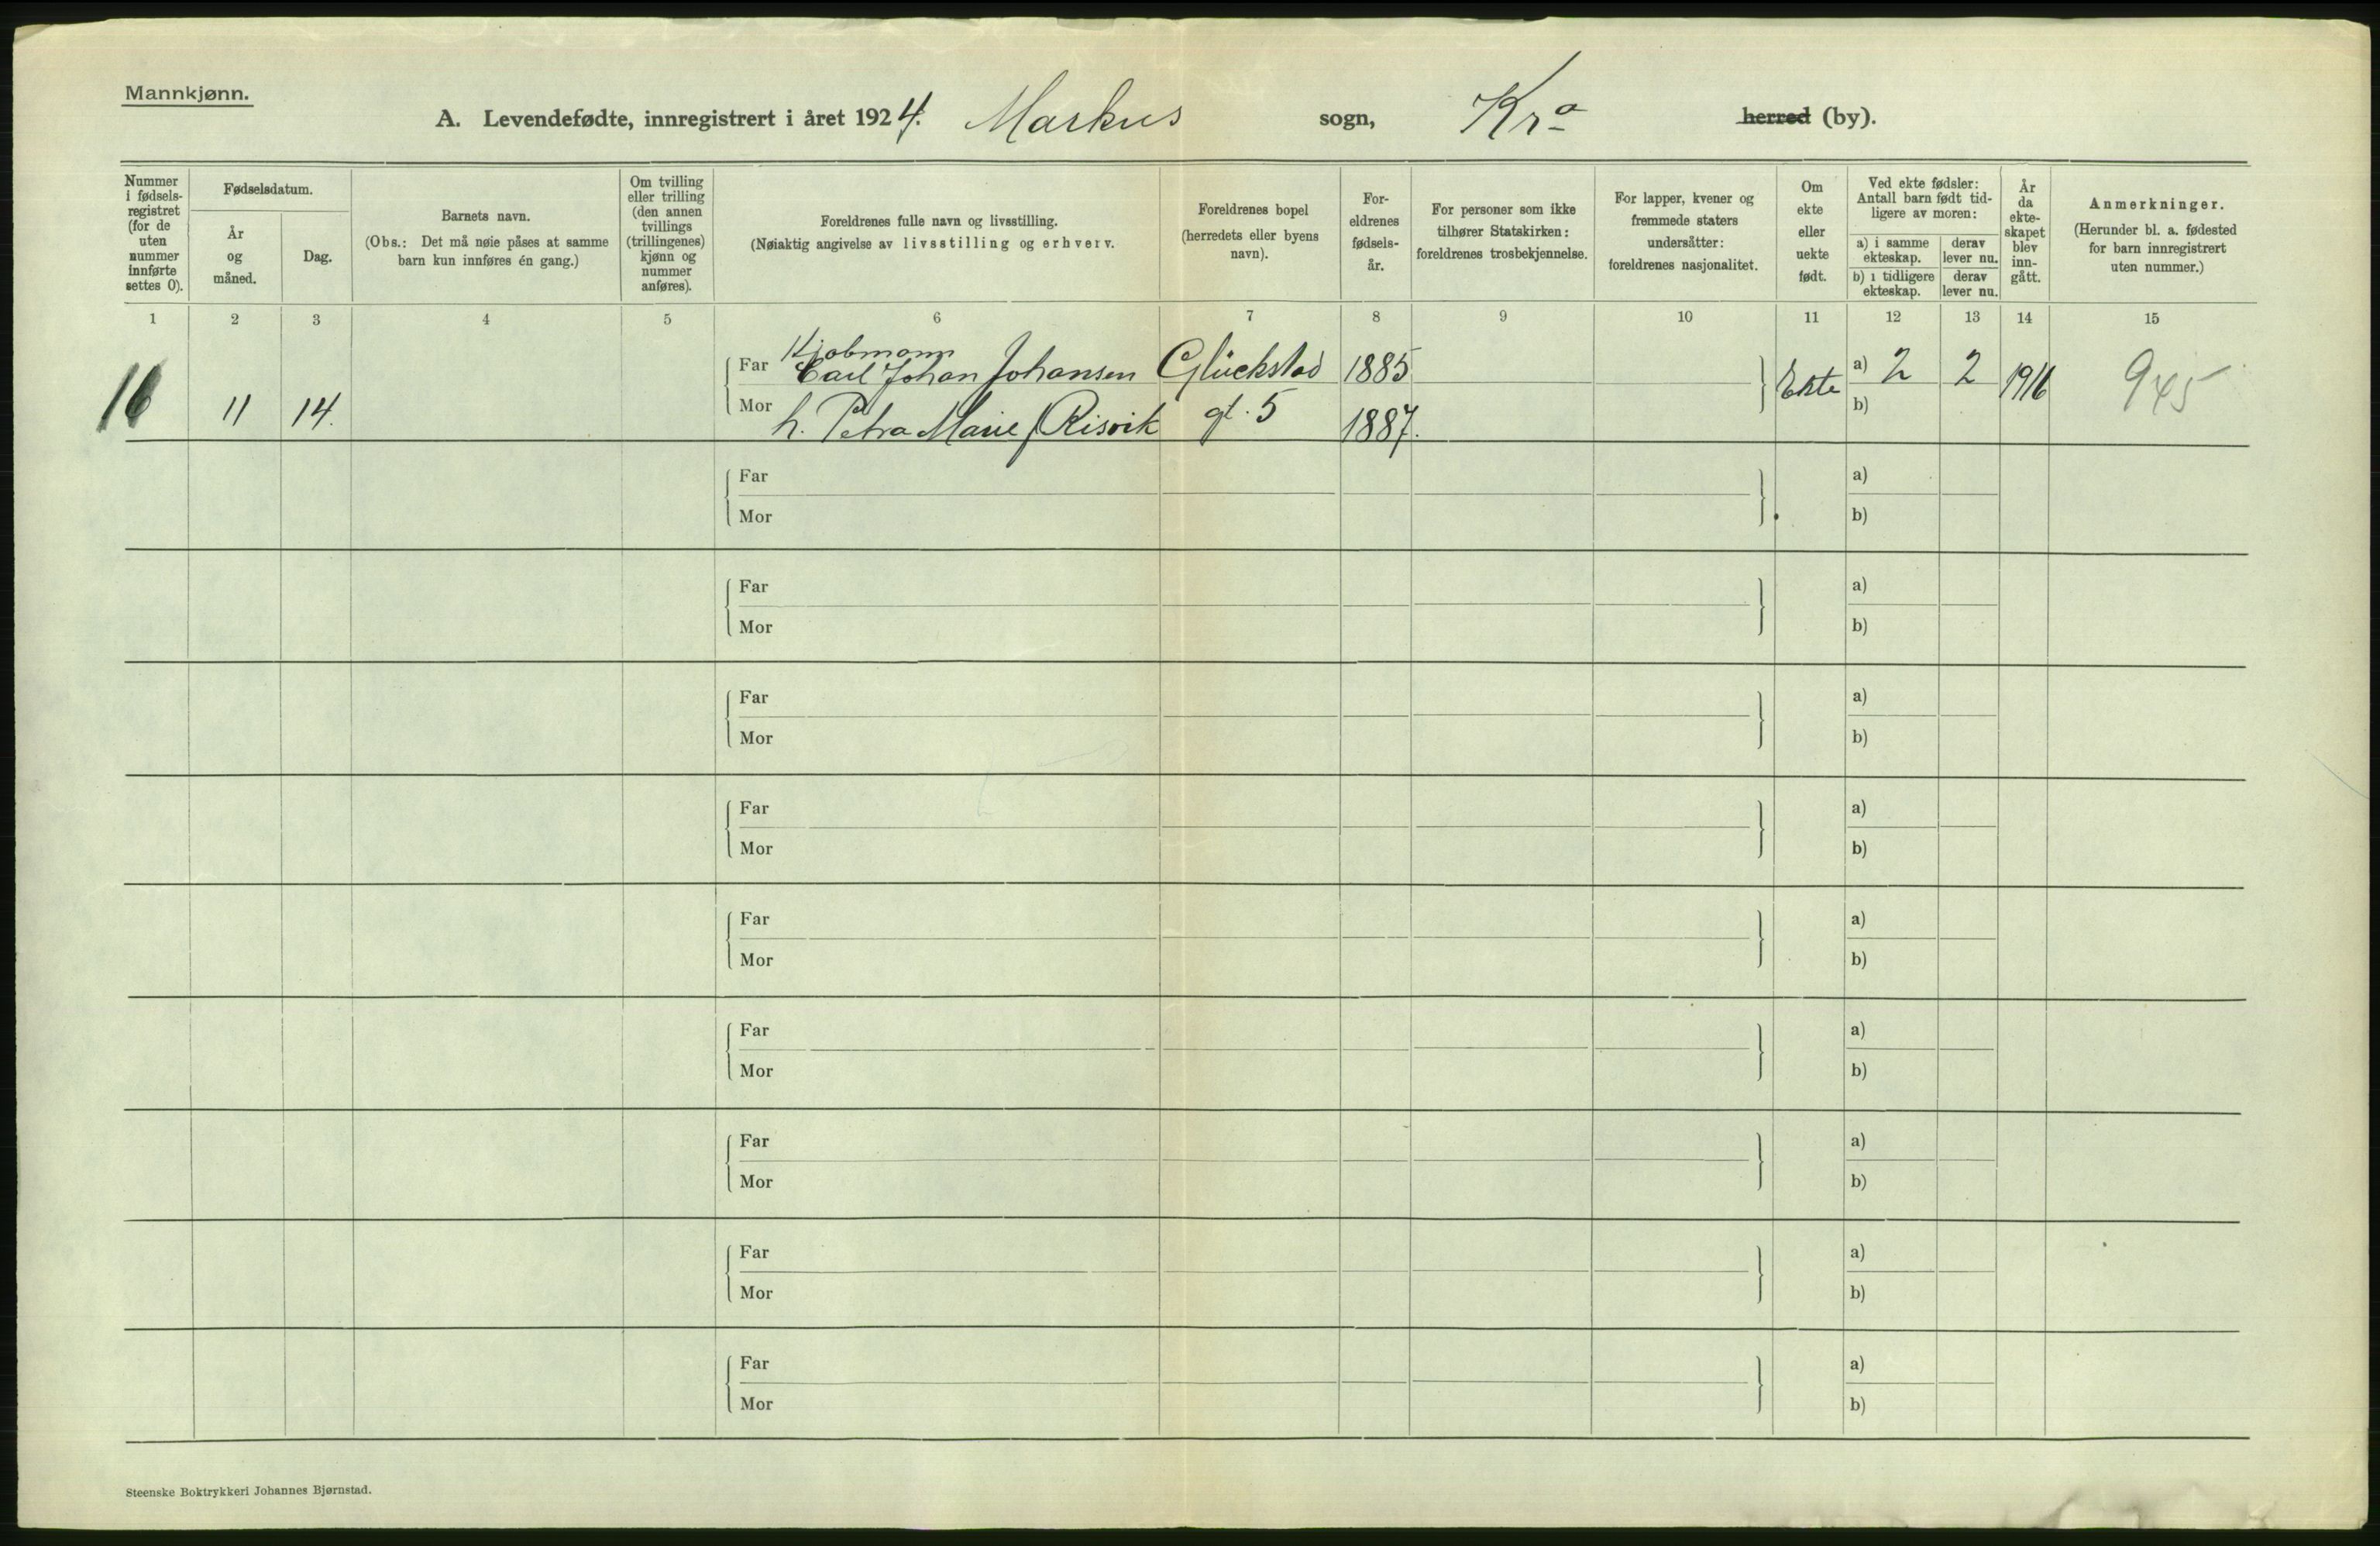 Mannkjønn.
A. Levendefødte, innregistrert i året 1924. Markus sogn, Kra herred (by).
Nummer i fødsels-registret (for de uten nummer innførte settes 0).
Fødselsdatum.
År og måned.
Dag.
Barnets navn.
(Obs.: Det må nøie påses at samme barn kun innføres én gang.)
Om tvilling eller trilling (den annen tvillings (trillingenes) kjønn og nummer anføres).
Foreldrenes fulle navn og livsstilling.
(Nøiaktig angivelse av livsstilling og erhverv.
Foreldrenes bopel (herredets eller byens navn).
For-eldrenes fødsels-år.
For personer som ikke tilhører Statskirken: foreldrenes trosbekjennelse.
For lapper, kvener og fremmede staters undersåtter: foreldrenes nasjonalitet.
Om ekte eller uekte født.
Ved ekte fødsler: Antall barn født tid-ligere av moren:
a) i samme ekteskap.
derav lever nu.
b) i tidligere ekteskap.
derav lever nu.
År da ekte-skapet blev inn-gått.
Anmerkninger.
(Herunder bl. a. fødested for barn innregistrert uten nummer.)
1 2 3 4 5 6 7 8 9 10 11 12 13 14 15
Kjøbmann
Far Carl Johan Johansen Glückstad 1885 a) 2 2
16 11 14. Ekte 1916 945
Mor h. Petra Marie f Risvik gt. 5 1887. b)
Far a)
Mor b)
Far a)
Mor b)
Far a)
Mor b)
Far a)
Mor b)
Far a)
Mor b)
Far a)
Mor b)
Far a)
Mor b)
Far a)
Mor b)
Far a)
Mor b)
Steenske Boktrykkeri Johannes Bjørnstad.